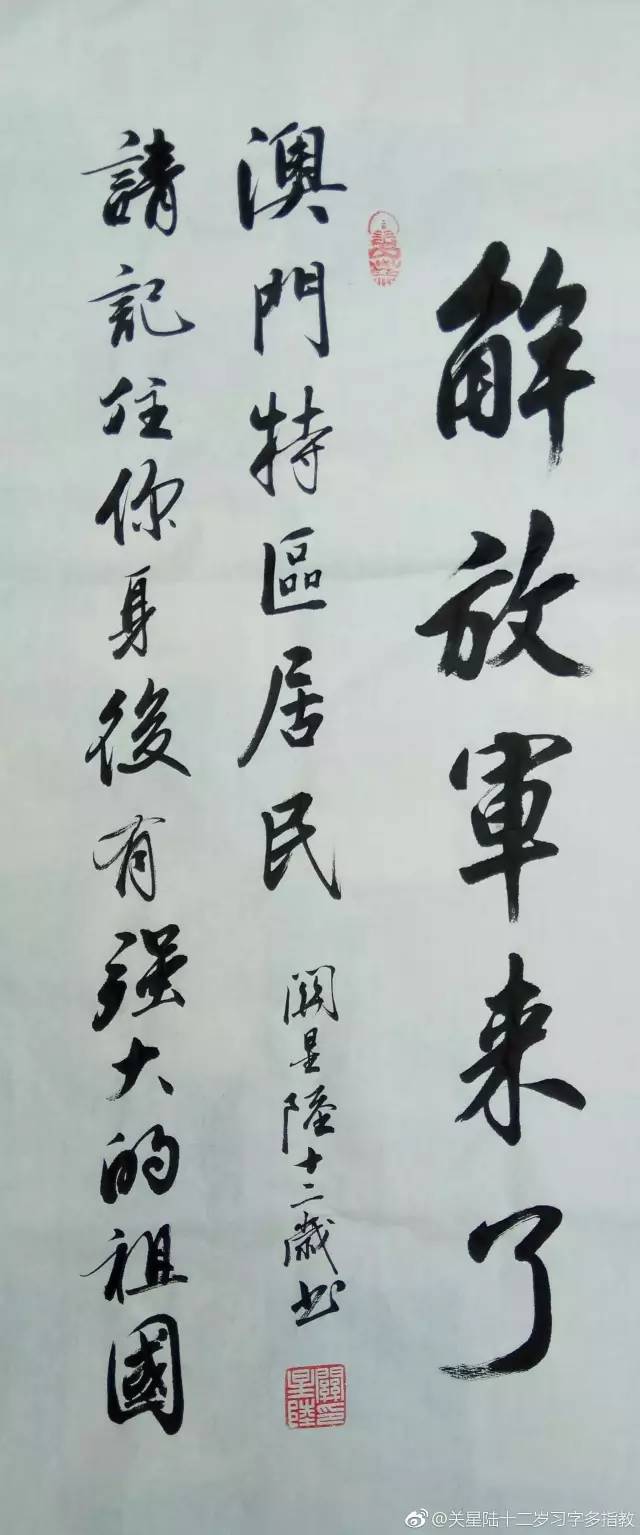 解放軍来了
澳門特區居民
關星陸十二歲书
請記住你身後有强大的祖國
關星陸印
@关星陆十二岁习字多指教